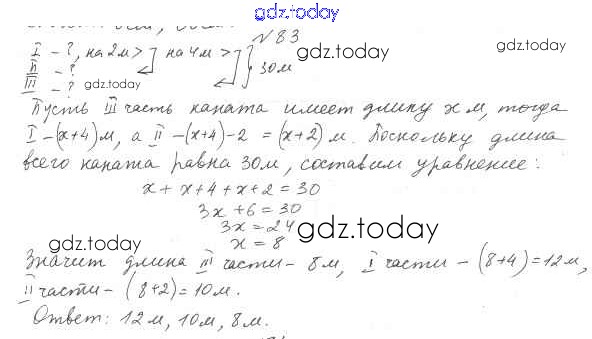 gdz.today
№83
I - ?, на 2м > на 4м >
II - ? 30м
III - ? gdz.today
gdz.today
Пусть III часть каната имеет длину x м, тогда
I – (x+4) м, а II – (x+4) – 2 = (x+2) м. Поскольку длина
всего каната равна 30м, составим уравнение:
x + x + 4 + x + 2 = 30
3x + 6 = 30
3x = 24
x = 8
gdz.today
gdz.today
Значит длина III части – 8м, I части – (8+4) = 12м,
II части – (8+2) = 10м.
Ответ: 12м, 10м, 8м.
gdz.today